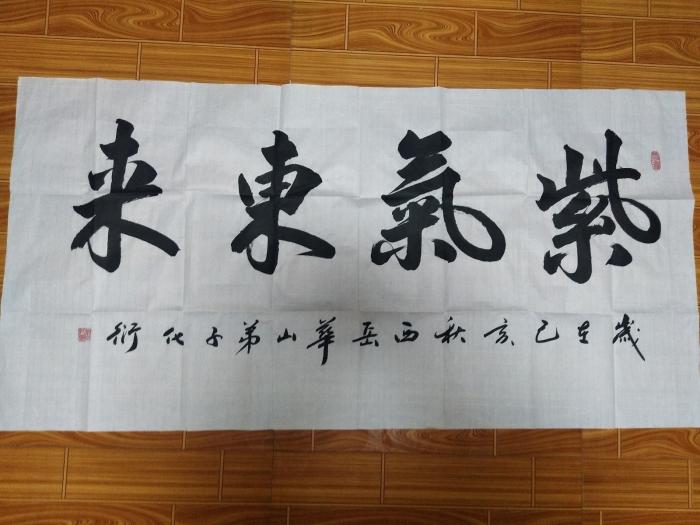 紫氣東来
歲在己亥秋西岳華山弟子化衍